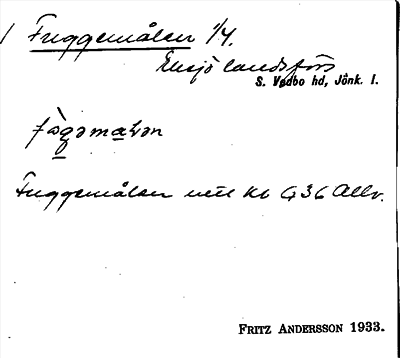 1 Fuggemålen 1/4.
Eksjö landsförs
S. Vedbo hd, Jönk. l.
Fuggemålen kb G36 Allv.
FRITZ ANDERSSON 1933.